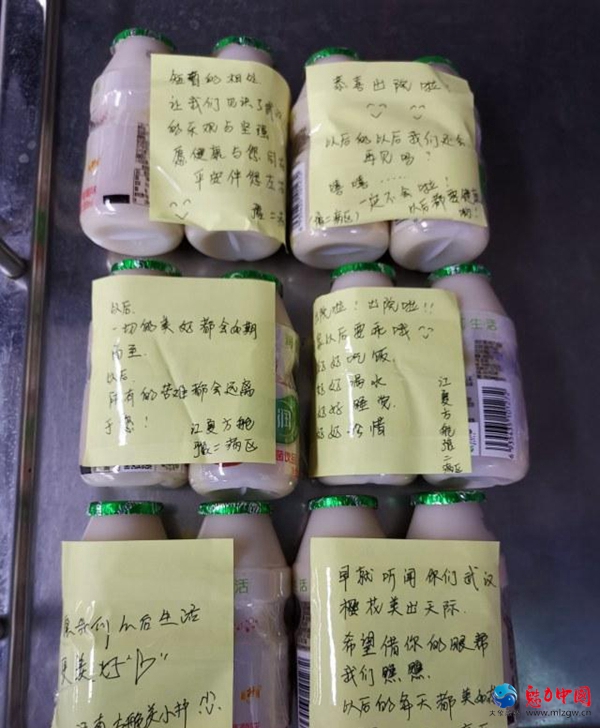 短暂的相处
让我们见识了武汉
的乐观与坚强
愿健康与您同在
平安伴您左右
张二病区
恭喜出院啦!
以后的以后我们还会
再见吗?
嘻嘻……
一定不会啦!
以后都要健康
哟!
以后,
一切的美好都会如期
而至.
以后
所有的苦难都会远离
于您!
江夏方舱
张二病区
院啦!出院啦!!
以后要乖哦
好好吃饭.
好好喝水
好好睡觉
好好珍惜
江夏方舱
张二病区
生活
润
我们以后生活
更美好"
早就听闻你们武汉
樱花美出天际.
希望借你的眼帮
我们瞧瞧.
以后的每天都美
魅力中国
www.mlzgw.cn